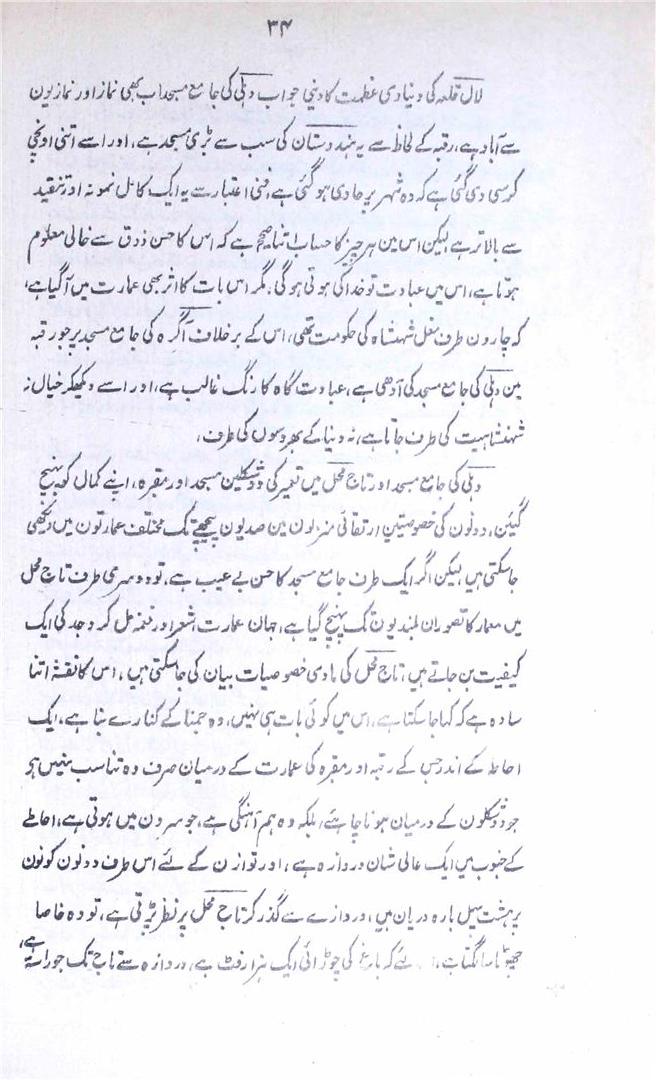 ۳۴
لال قلعہ کی دنیاوی عظمت کا دینی جواب دہلی کی جامع مسجد اب بھی نماز اور نمازیون
سے آباد ہے، رقبہ کے لحاظ سے یہ ہندوستان کی سب سے بڑی مسجد ہے، اور اسے اتنی اونچی
کرسی دی گئی ہے کہ وہ شہر پر حاوی ہو گئی ہے، فنی اعتبار سے یہ ایک کامل نمونہ اور تنقید
سے بالاتر ہے، لیکن اس مین ہر چیز کا حساب اتنا صحیح ہے کہ اس کا حسن ذوق سے خالی معلوم
ہوتا ہے، اس میں عبادت تو خدا کی ہوتی ہوگی، مگر اس بات کا اثر بھی عمارت میں آگیا ہے،
کہ چارون طرف مغل شہنشاہ کی حکومت تھی، اس کے برخلاف آگرہ کی جامع مسجد پر جو رقبہ
مین دہلی کی جامع مسجد کی آدھی ہے، عبادت گاہ کا رنگ غالب ہے، اور اسے دیکھکر خیال نہ
شہنشاہیت کی طرف جاتا ہے، نہ دنیا کے بھروسوں کی طرف،
دہلی کی جامع مسجد اور تاج محل میں تعمیر کی دو شکلین مسجد اور مقبرہ، اپنے کمال کو پہنچ
گئین، دونون کی خصوصیتین ارتقائی منزلون مین صدیون پیچھے تک مختلف عمارتون میں دیکھی
جاسکتی ہیں، لیکن اگر ایک طرف جامع مسجد کا حسن بے عیب ہے، تو دوسری طرف تاج محل
میں معمار کا تصور ان بلندیون تک پہنچ گیا ہے، جہان عمارت، شعر اور نغمہ مل کر وجد کی ایک
کیفیت بن جاتے ہیں، تاج محل کی مادی خصوصیات بیان کی جاسکتی ہیں، اس کا نقشہ اتنا
سادہ ہے کہ کہا جاسکتا ہے، اس میں کوئی بات ہی نہیں، وہ جمنا کے کنارے بنا ہے، ایک
احاطہ کے اندر جس کے رقبہ اور مقبرہ کی عمارت کے درمیان صرف وہ تناسب نہیں ہے
جو دو شکلون کے درمیان ہونا چاہئے، بلکہ وہ ہم آہنگی ہے، جو سرون میں ہوتی ہے، احاطے
کے جنوب میں ایک عالی شان دروازہ ہے، اور توازن کے لئے اس طرف دونون کونون
پر ہشت پہل بارہ دریان ہیں، دروازے سے گذر کر تاج محل پر نظر پڑتی ہے، تو وہ خاصا
چھوٹا سا لگتا ہے، لئے کہ باغ کی چوڑائی ایک ہزار فٹ ہے، دروازہ سے تاج تک جو راستہ ہے،